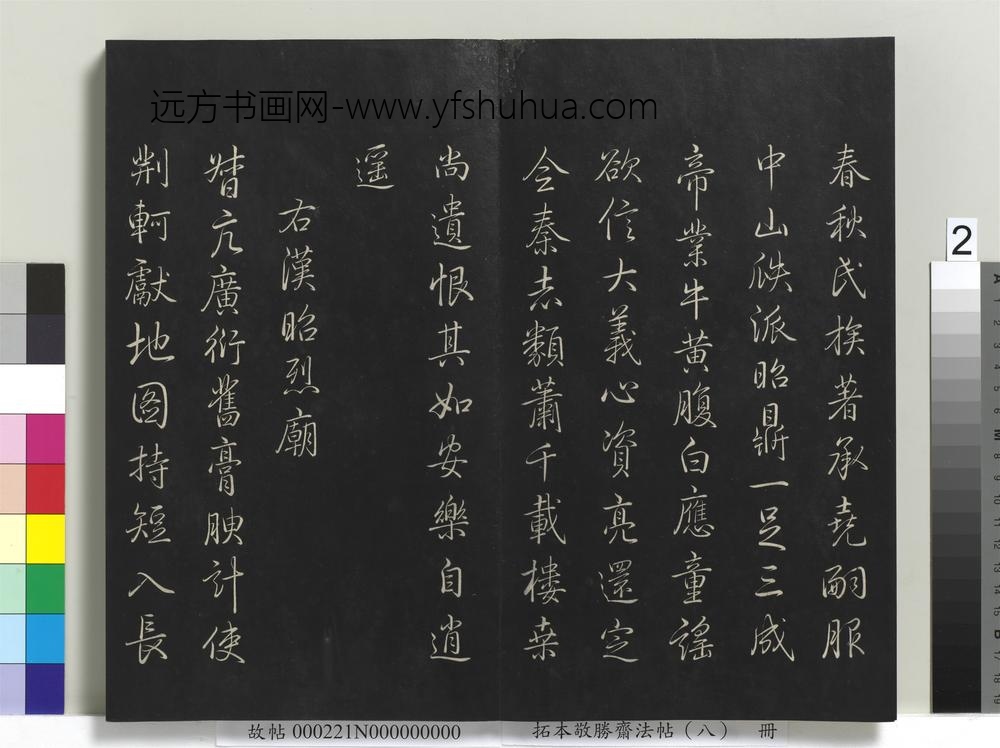 远方书画网-www.yfshuhua.com
春秋氏族著承堯嗣服
中山㳀派昭鼎一足三成
帝業牛黃腹白應童謠
欲信大義心資亮還定
令秦志類蕭千載樓桑
尚遺恨其如安樂自逍
遥
右漢昭烈廟
督亢廣衍舊膏腴計使
荆軻獻地图持短入長
2
故帖 000221N000000000
拓本敬勝齋法帖（八） 冊